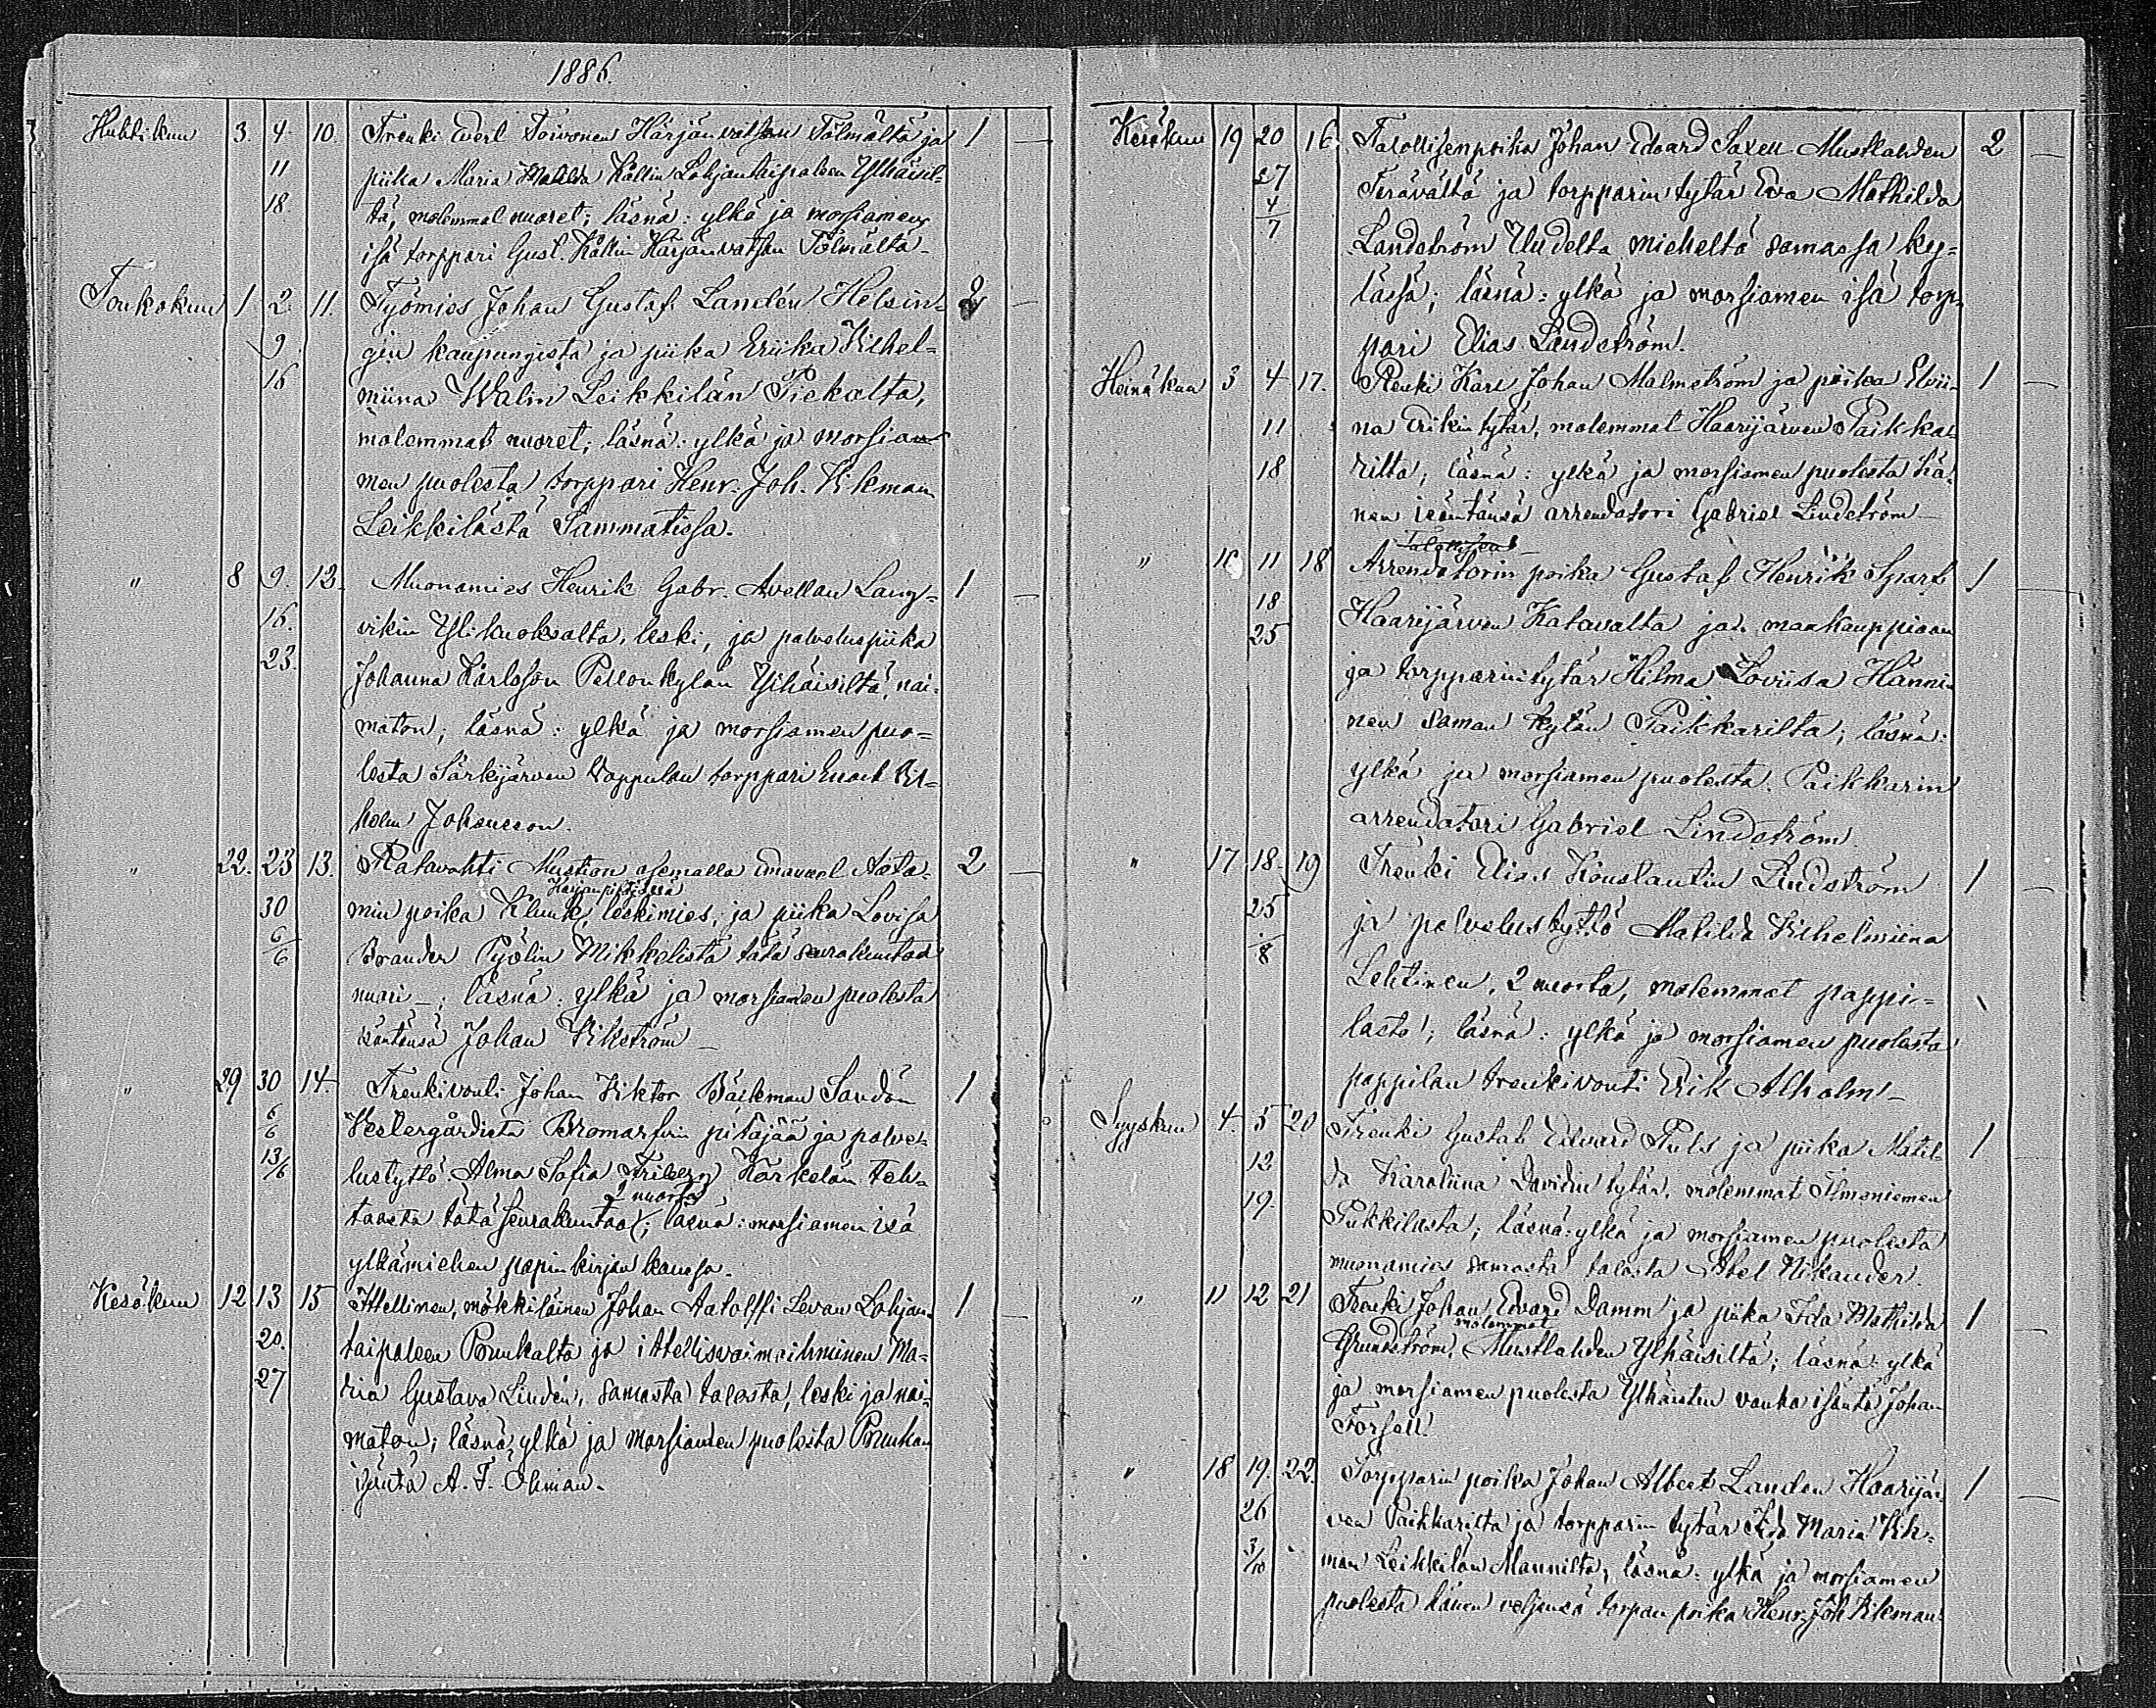 1886.
Huhtikuu 3. 4 10. Trenki Everl Toivonen Härjänvatsan Tölmältä ja 1 —
11 piika Maria Matilda Källin Lohjantaipaleen Ylhäisil-
18. tä, molemmat nuoret; läsnä: ylkä ja morsiamen
isä torppari Gust. Källin Härjänvatsan Tölmältä —
Toukokuu 1 2 11. Työmies Johan Gustaf Landén Helsin- 2 —
9. gin kaupungista ja piika Eriika Vilhel-
16 miina Walin Leikkilän Piekalta,
molemmat nuoret; läsnä: ylkä ja morsia-
men puolesta torppari Henr. Joh. Vikman
Leikkilästä Sammatissa.
" 8 9. 12. Muonamies Henrik Gabr. Avellan Lang- 1 —
16. vikin Ylikuoksalta, leski, ja palveluspiika
23. Johanna Karlsson Pellonkylän Ylhäisiltä, nai-
maton; läsnä: ylkä ja morsiamen puo-
lesta Särkijärven Vappulan torppari Enock Vil-
helm Johansson.
" 22. 23 13. Ratavahti Mustion asemalla Emanuel Aata- 2 —
Karjan pitäjässä
30 min poika Klunk, leskimies, ja piika Lovisa
6/6 Brander Pyölin Mikkelistä tätä seurakuntaa
nuori —; läsnä: ylkä ja morsiamen puolesta
isäntänsä Johan Vikström —
" 29 30 14. Trenkivouti Johan Viktor Bäckman Sandön 1
6/6 Vestergårdista Bromarfvin pitäjää ja palve-
13/6 lustyttö Alma Sofia Friberg Kärkelän teh-
2 nuorta
taasta tätä seurakuntaa; läsnä: morsiamen isä
ylkämiehen papinkirjan kanssa.
Kesäkuu 12 13 15 Itellinen, mökkiläinen Johan Aatolffi Levan Lohjan- 1 —
20. taipaleen Prunkalta ja itellisvaimoihminen Ma-
27 ria Gustava Lindén, samasta talosta, leski ja nai-
maton; läsnä ylkä ja morsiamen puolesta Prunkan
isäntä A. F. Öhman.
Kesäkuu 19 20 16. Talollisenpoika Johan Edvard Saxell Mustlahden 2 —
27 Terävältä ja torpparin tytär Eva Mathilda
4/7 Landström Uudelta mieheltä samassa ky-
lässä; läsnä: ylkä ja morsiamen isä torp-
pari Elias Landström.
Heinäkuu 3 4 17. Renki Karl Johan Malmström ja piika Elvii- 1 —
11 na Erikin tytär, molemmat Haarijärven Paikka-
18 rilta; läsnä: ylkä ja morsiamen puolesta hä-
nen isäntänsä arrendatori Gabriel Lindström —
Talollisen
" 10 11 18 Arrendatorin poika Gustaf Henrik Sparf 1 —
18 Haarijärven Katavalta ja maakauppiaan
25 ja torpparin tytär Hilma Loviisa Hänni-
nen saman kylän Paikkarilta; läsnä:
ylkä ja morsiamen puolesta Paikkarin
arrendatori Gabriel Lindström.
" 17 18 19 Trenki Elias Konstantin Lindström 1 —
25 ja palvelustyttö Matilda Vilhelmiina
1/8 Lehtinen, 2 nuorta, molemmat pappi-
lasta; läsnä: ylkä ja morsiamen puolesta
pappilan trenkivouti Erik Alholm —
Syyskuu 4. 5 20 Trenki Gustaf Edvard Puls ja piika Matil- 1
12 da Karoliina Davidin tytär, molemmat Ilmoniemen
19. Pukkilasta; läsnä: ylkä ja morsiamen puolesta
muonamies samasta talosta Abel Nikander.
" 11 12 21 Trenki Johan Edvard Damm ja piika Ida Mathilda 1 —
molemmat
Grundström, Mustlahden Ylhäisiltä; läsnä: ylkä
ja morsiamen puolesta Ylhäisten vanha isäntä Johan
Forsell.
" 18 19. 22. Torpparin poika Johan Albert Landen Haarijär- 1 —
26 ven Paikkarilta ja torpparin tytär Ida Maria Vik-
3/10 man Leikkilän Mannilta; läsnä: ylkä ja morsiamen
puolesta hänen veljensä torpan poika Henr. Joh Vikman